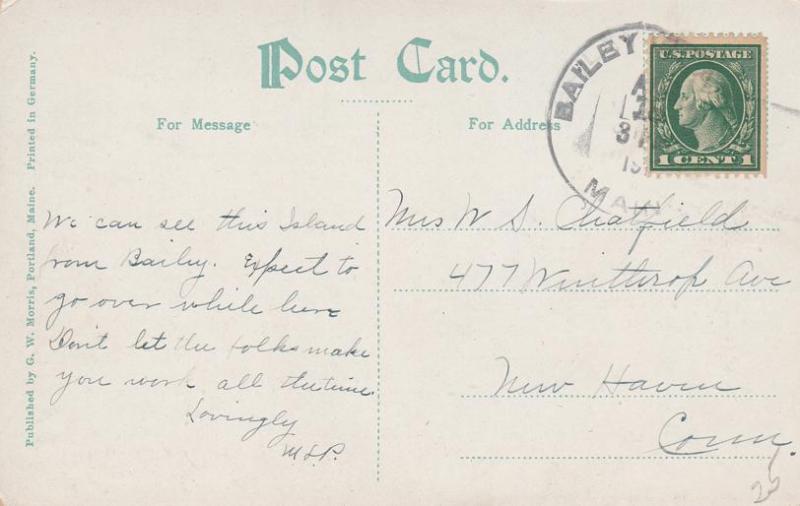 Post Card.
For Message
For Address
BAILEY
3
19
U.S. POSTAGE
1 CENT 1
We can see this Island
from Bailey. Expect to
go over while here
Don't let the folks make
you work all the time.
Lovingly
M.L.P.
Mrs W S. Chatfield
477 Winthrop Ave
New Haven
Conn.
25
Published by G. W. Morris, Portland, Maine. Printed in Germany.